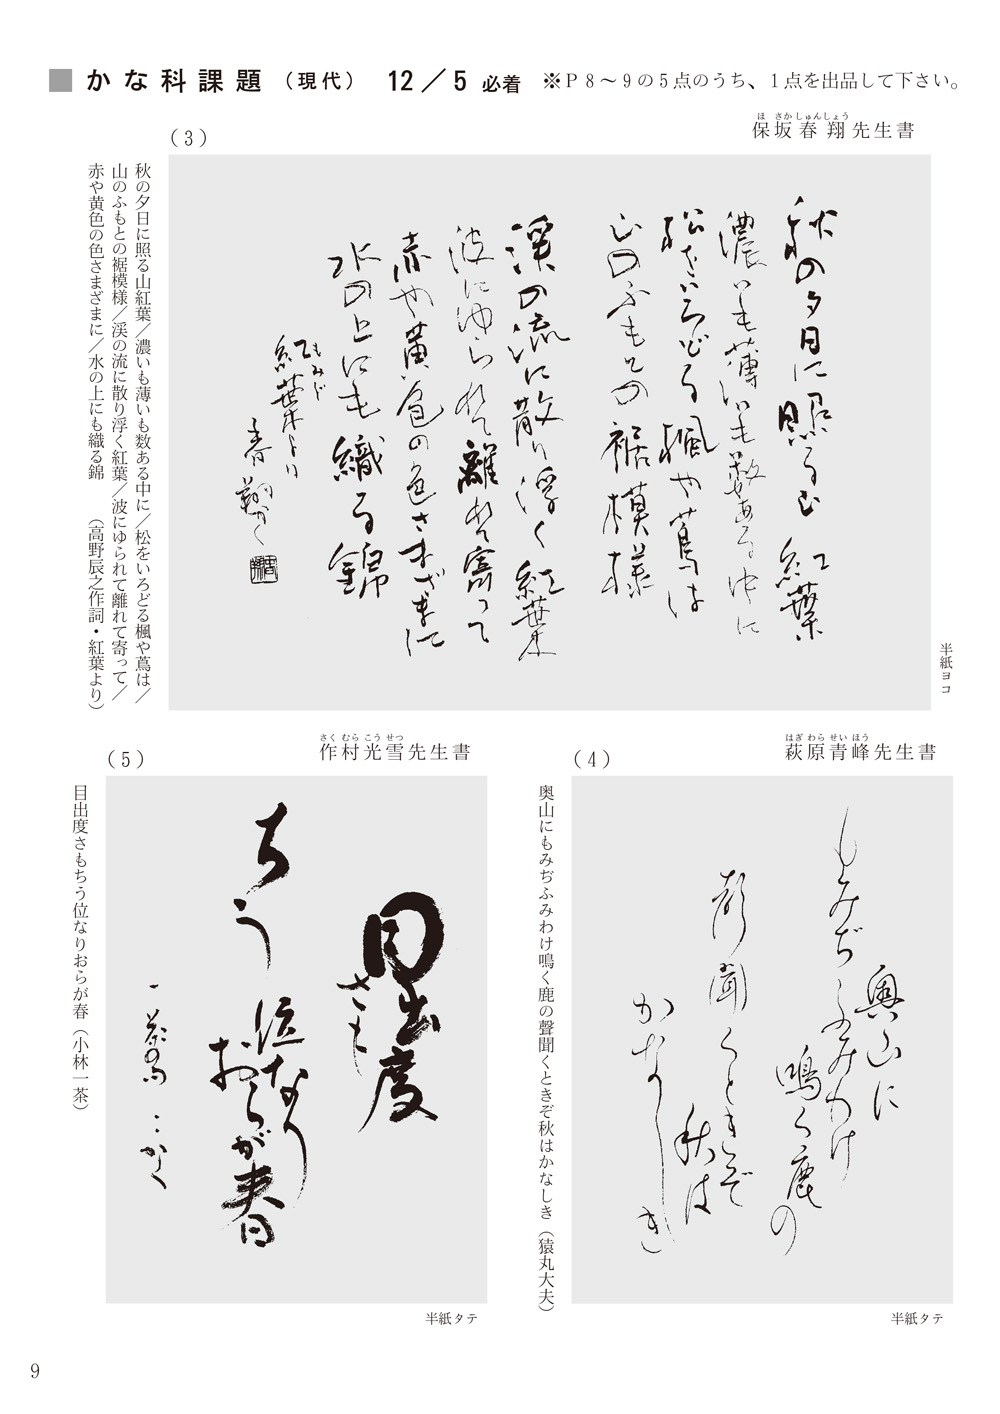 ■かな科課題（現代） 12／5必着 ※Ｐ8～9の5点のうち、1点を出品して下さい。
（3）
保坂春翔先生書
ほさかしゅんしょう
秋の夕日に照る山紅葉／濃いも薄いも数ある中に／松をいろどる楓や蔦は／
山のふもとの裾模様／渓の流に散り浮く紅葉／波にゆられて離れて寄って／
赤や黄色の色さまざまに／水の上にも織る錦 （高野辰之作詞・紅葉より）
秋の夕日に照る山紅葉
濃いも薄いも数ある中に
松をいろどる楓や蔦は
山のふもとの裾模様
渓の流に散り浮く紅葉
波にゆられて離れて寄って
赤や黄色の色さまざまに
水の上にも織る錦
紅葉より
もみじ
春翔かく
半紙ヨコ
（4）
萩原青峰先生書
はぎわらせいほう
奥山にもみぢふみわけ鳴く鹿の聲聞くときぞ秋はかなしき（猿丸大夫）
奥山に
もみぢふみわけ
鳴く鹿の
聲聞くときぞ
秋は
かなしき
半紙タテ
（5）
作村光雪先生書
さくむらこうせつ
目出度さもちう位なりおらが春（小林一茶）
目出度
さも
ちう
位なり
おらが春
一茶の句
かく
半紙タテ
9